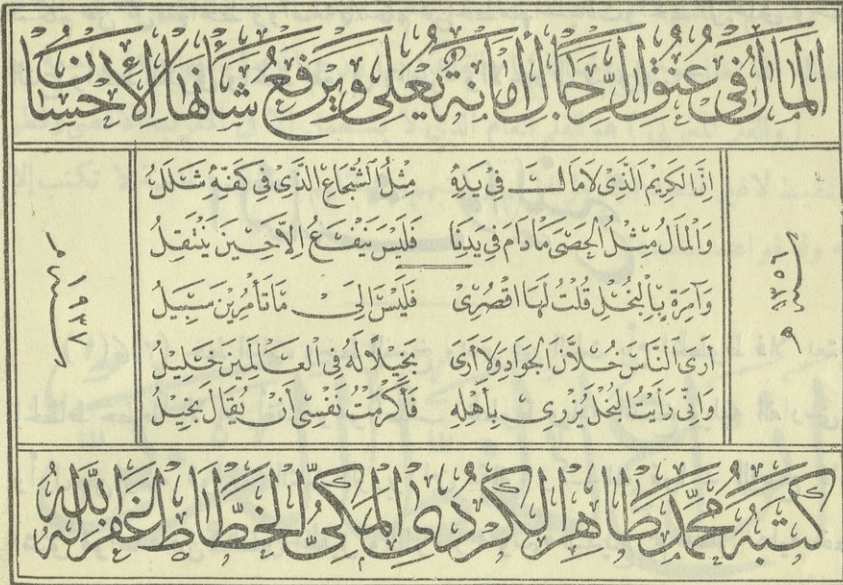 المَالُ فِي عُنُقِ الرِّجَالِ أَمَانَةٌ تُعْلِي وَيَرْفَعُ شَأْنَهَا الإِحْسَانُ
إِنَّ الكَرِيمَ الَّذِي لَا مَالَ فِي يَدِهِ مِثْلُ الشُّجَاعِ الَّذِي فِي كَفِّهِ شَلَلُ
وَالمَالُ مِثْلُ الحَصَى مَا دَامَ فِي يَدِنَا فَلَيْسَ يَنْفَعُ إِلَّا حِينَ يَنْتَقِلُ
وَآمِرَةٍ بِالبُخْلِ قُلْتُ لَهَا اقْصُرِى فَلَيْسَ إِلَى مَا تَأْمُرِينَ سَبِيلُ
أَرَى النَّاسَ خُلَّانَ الجَوَادِ وَلَا أَرَى بَخِيلًا لَهُ فِي العَالَمِينَ خَلِيلُ
وَإِنِّى رَأَيْتُ البُخْلَ يُزْرِى بِأَهْلِهِ فَأَكْرَمْتُ نَفْسِى أَنْ يُقَالَ بَخِيلُ
سنة ١٣٥٦ هـ
سنة ١٩٣٧ م
كَتَبَهُ مُحَمَّد طَاهِر الكُرْدِي المَكِّيُّ الخَطَّاط غَفَرَ اللهُ لَهُ